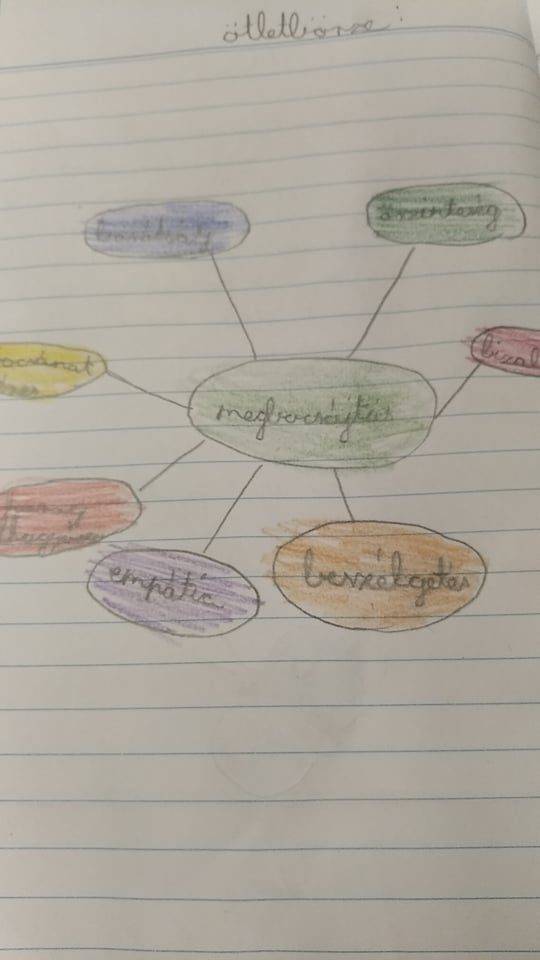 ötletbörze:
barátság
őszinteség
bocsánat
bizal
megbocsájtás
empátia
beszélgetés